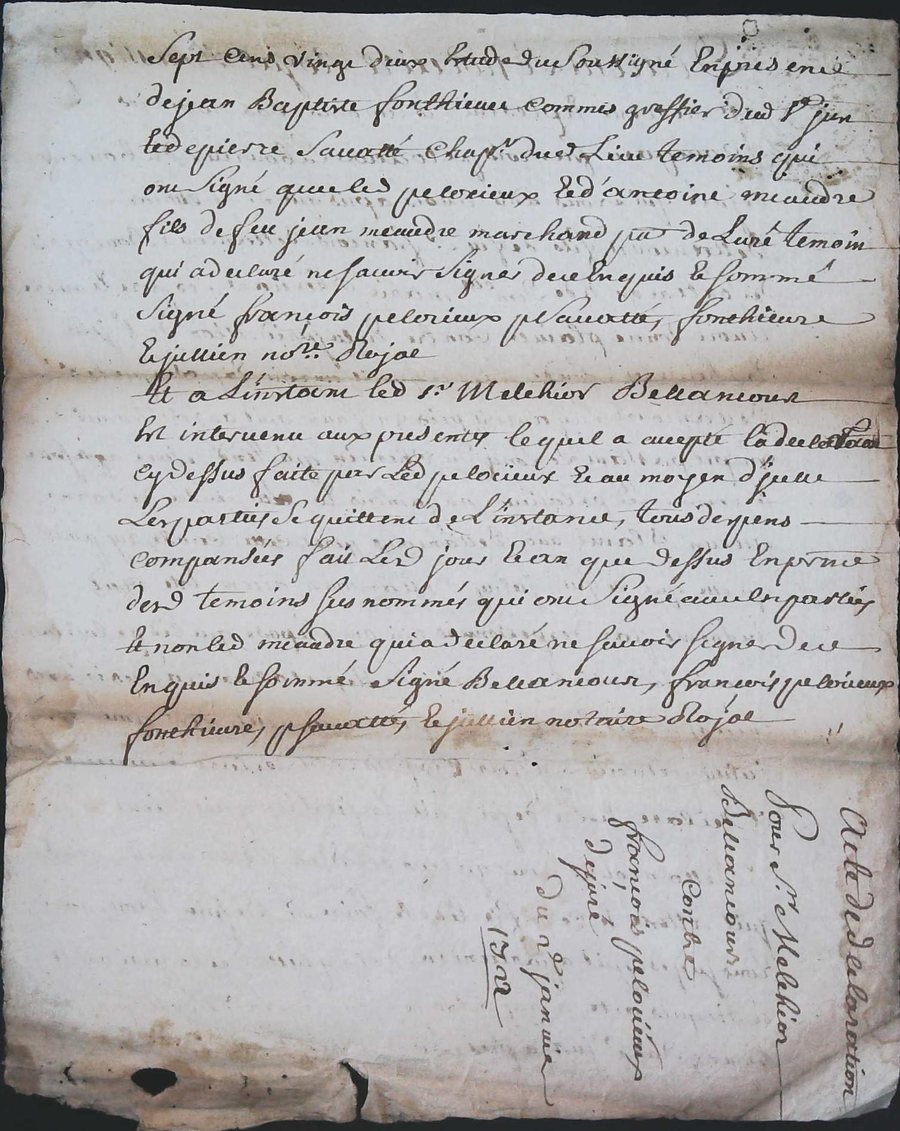 Sept cens vinge deux Etude du Soussigné En presence
de jean Baptiste fonthieure commis greffier dud St jun
et de pierre Sauatté Chapr dud Lieu temoins qui
ont Signé auec led pelorieux et d'antoine meaudre
fils de feu jean meaudre marchand par de Luré temoin
qui a declaré ne sauoir Signer de ce Enquis et sommé
Signé françois pelorieux pSauatté, fonthieure
et jullien nore Rojal
Et a L'instant led Sr Melchior Bellancour
Est interuenu aux presentes lequel a accepté la declaration
cy dessus faite par Led pelorieux et au moyen d'jcelle
Les parties Se quittent de L'instance, tous depens
compansées fait Led jour et an que dessus En pnce
desd temoins sus nommés qui ont Signé auec les parties
et non led meaudre qui a declaré ne sauoir signer de ce
Enquis et sommé Signé Bellancour, françois pelorieux
fonthieure, pSauatté, et jullien notaire Rojal
Acte de declaration
Pour Sr Melchior
Bellancour
Contre
françois pelorieux
de juré
du 2e janvier
1722